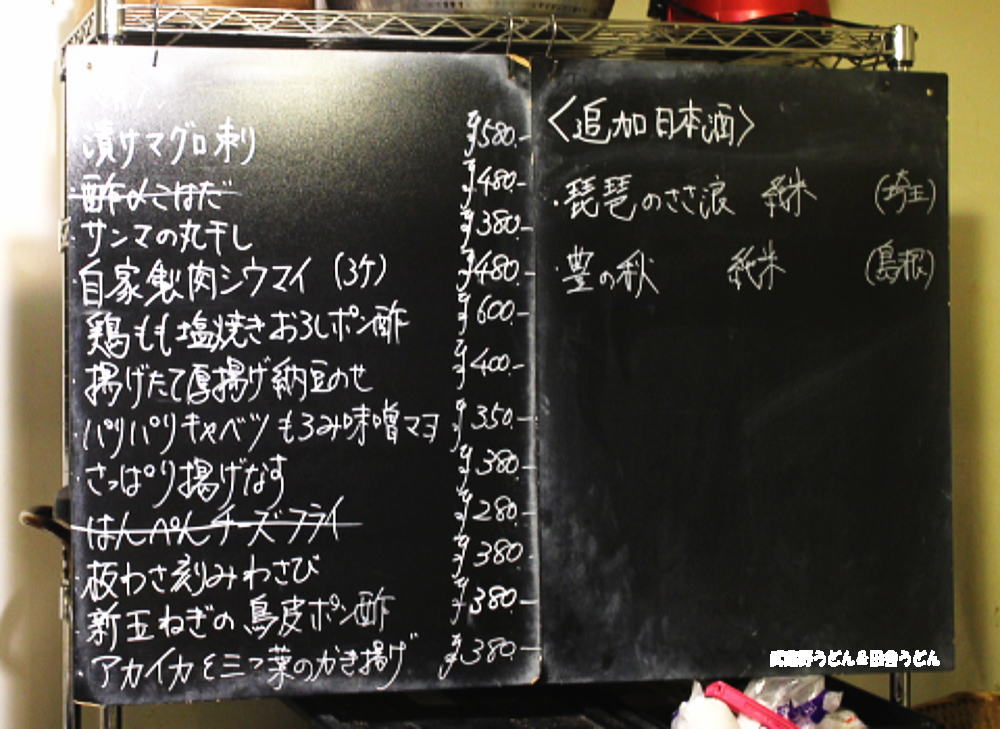 漬サマグロ刺 ¥580.-
酢〆こはだ ¥480.-
サンマの丸干し ¥380.-
自家製肉シウマイ (3ケ) ¥480.-
鶏もも塩焼きおろしポン酢 ¥600.-
揚げたて厚揚げ納豆のせ ¥400.-
パリパリキャベツもろみ味噌マヨ ¥350.-
さっぱり揚げなす ¥380.-
はんぺんチーズフライ ¥280.-
板わさ刻みわさび ¥380.-
新玉ねぎの鳥皮ポン酢 ¥380.-
アカイカと三つ葉のかき揚げ ¥380.-
〈追加日本酒〉
・琵琶のささ浪 純米 (埼玉)
・豊の秋 純米 (島根)
武蔵野うどん&田舎うどん